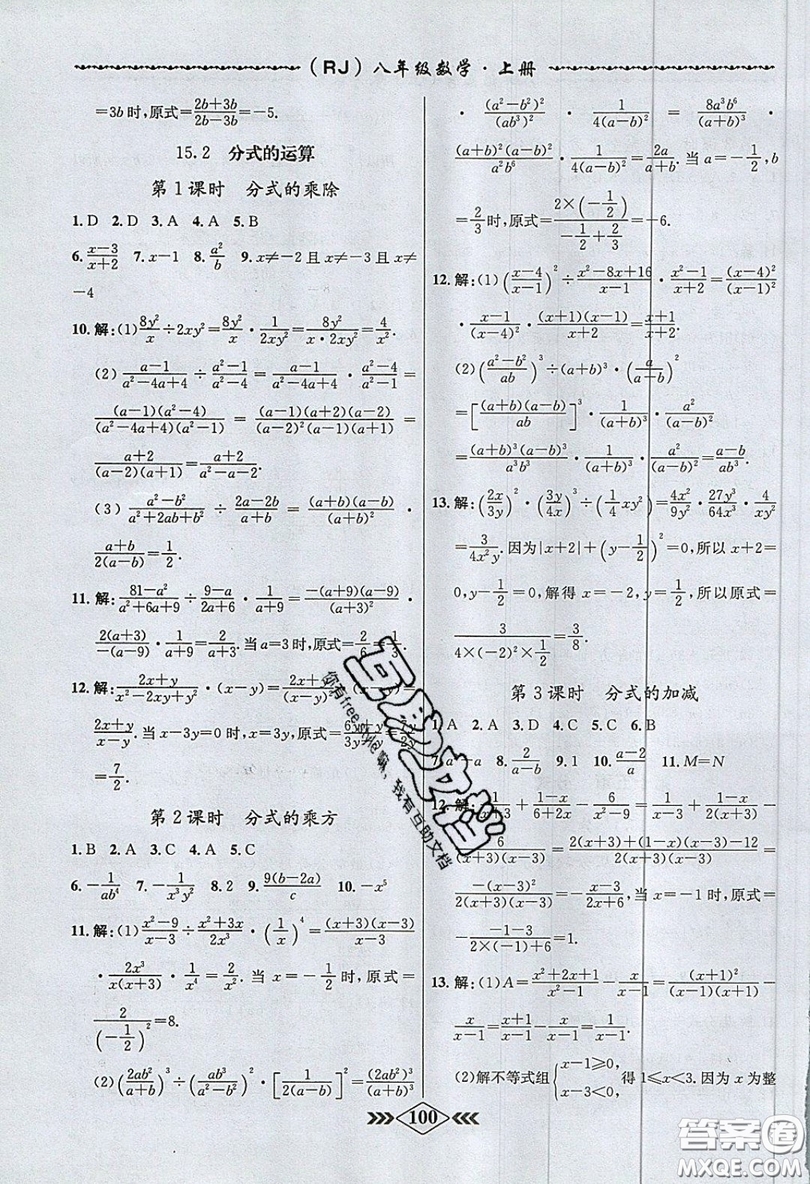 (RJ)八年级数学·上册
=3b时,原式=\frac{2b+3b}{2b-3b}=-5.
15.2 分式的运算
第1课时 分式的乘除
1.D 2.D 3.A 4.A 5.B
6.\frac{x-3}{x+2} 7.x-1 8.\frac{a^2}{b} 9.x≠-2且x≠-3且x≠
-4
10.解:(1)\frac{8y^2}{x}÷2xy^2=\frac{8y^2}{x}·\frac{1}{2xy^2}=\frac{8y^2}{x·2xy^2}=\frac{4}{x^2}.
(2)\frac{a-1}{a^2-4a+4}÷\frac{a^2-1}{a^2-4}=\frac{a-1}{a^2-4a+4}·\frac{a^2-4}{a^2-1}=
\frac{(a-1)(a^2-4)}{(a^2-4a+4)(a^2-1)}=\frac{(a-1)(a+2)(a-2)}{(a-2)^2(a-1)(a+1)}=
\frac{a+2}{(a-2)(a+1)}=\frac{a+2}{a^2-a-2}.
(3)\frac{a^2-b^2}{a^2+2ab+b^2}÷\frac{2a-2b}{a+b}=\frac{(a+b)(a-b)}{(a+b)^2}·
\frac{a+b}{2(a-b)}=\frac{1}{2}.
11.解:\frac{81-a^2}{a^2+6a+9}÷\frac{9-a}{2a+6}·\frac{1}{a+9}=\frac{-(a+9)(a-9)}{(a+3)^2}·
\frac{2(a+3)}{-(a-9)}·\frac{1}{a+9}=\frac{2}{a+3}.当a=3时,原式=\frac{2}{6}=\frac{1}{3}.
12.解:\frac{2x+y}{x^2-2xy+y^2}·(x-y)=\frac{2x+y}{(x-y)^2}·(x-y)=
\frac{2x+y}{x-y}.当x-3y=0时,x=3y,原式=\frac{6y+y}{3y-y}=\frac{7y}{2y}
=\frac{7}{2}.
第2课时 分式的乘方
1.B 2.A 3.C 4.A 5.C
6.-\frac{1}{ab^4} 7.-\frac{1}{x^3y^2} 8.2 9.\frac{9(b-2a)}{c} 10.-x^5
11.解:(1)\frac{x^2-9}{x-3}÷\frac{x^2+3x}{2x^3}·(\frac{1}{x})^4=\frac{(x+3)(x-3)}{x-3}
·\frac{2x^3}{x(x+3)}·\frac{1}{x^4}=\frac{2}{x^2}.当x=-\frac{1}{2}时,原式=
\frac{2}{(-\frac{1}{2})^2}=8.
(2)(\frac{2ab^2}{a+b})^3÷(\frac{ab^3}{a^2-b^2})^2·[\frac{1}{2(a-b)}]^2=\frac{(2ab^2)^3}{(a+b)^3}
·\frac{(a^2-b^2)^2}{(ab^3)^2}·\frac{1}{4(a-b)^2}=\frac{8a^3b^6}{(a+b)^3}·
\frac{(a+b)^2(a-b)^2}{a^2b^6}·\frac{1}{4(a-b)^2}=\frac{2a}{a+b}.当a=-\frac{1}{2},b
=\frac{2}{3}时,原式=\frac{2×(-\frac{1}{2})}{-\frac{1}{2}+\frac{2}{3}}=-6.
12.解:(1)(\frac{x-4}{x-1})^2÷\frac{x^2-8x+16}{x-1}·\frac{x^2-1}{x+2}=\frac{(x-4)^2}{(x-1)^2}
·\frac{x-1}{(x-4)^2}·\frac{(x+1)(x-1)}{x+2}=\frac{x+1}{x+2}.
(2)(\frac{a^2-b^2}{ab})^3÷(a-b)^3·(\frac{a}{a+b})^2
=[\frac{(a+b)(a-b)}{ab}]^3·\frac{1}{(a-b)^3}·\frac{a^2}{(a+b)^2}=
\frac{(a+b)^3(a-b)^3}{a^3b^3}·\frac{1}{(a-b)^3}·\frac{a^2}{(a+b)^2}=\frac{a+b}{ab^3}.
13.解:(\frac{2x}{3y})^2·(\frac{3y}{4x})^3÷(\frac{1}{4}xy^2)=\frac{4x^2}{9y^2}·\frac{27y^3}{64x^3}·\frac{4}{xy^2}=
\frac{3}{4x^2y}.因为|x+2|+(y-\frac{1}{2})^2=0,所以x+2=
0,y-\frac{1}{2}=0,解得x=-2,y=\frac{1}{2},所以原式=
\frac{3}{4×(-2)^2×\frac{1}{2}}=\frac{3}{8}.
第3课时 分式的加减
1.A 2.A 3.D 4.C 5.C 6.B
8.\frac{2}{a-b} 9.1 10.\frac{a-2}{a} 11.M=N
12.解:\frac{x}{x+3}+\frac{1-x}{6+2x}-\frac{6}{x^2-9}=\frac{x}{x+3}+\frac{1-x}{2(x+3)}-
\frac{6}{(x+3)(x-3)}=\frac{2x(x-3)+(1-x)(x-3)-12}{2(x+3)(x-3)}
=\frac{(x-3)(x+3)-2(x+3)}{2(x+3)(x-3)}
=\frac{-1-3}{2×(-1)+6}=1.
13.解:(1)A=\frac{x^2+2x+1}{x^2-1}-\frac{x}{x-1}=\frac{(x+1)^2}{(x+1)(x-1)}-
\frac{x}{x-1}=\frac{x+1}{x-1}-\frac{x}{x-1}=\frac{1}{x-1}.
(2)解不等式组{x-1≥0, x-3<0,得1≤x<3.因为x为整
100
互助文档
你有free style嘛,我有互助文档
答案圈
MXQE.COM